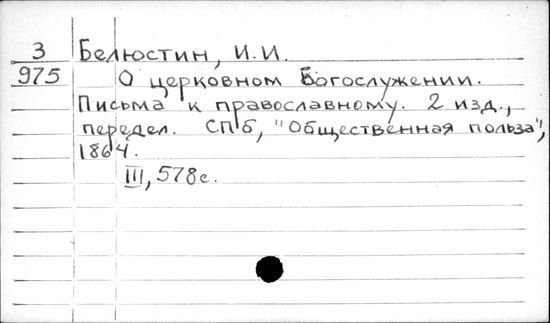 3 Белюстин, И.И.
975 О церковном Богослужении.
Письма к православному. 2 изд.,
передел. СПб, "Общественная польза",
1864.
III, 578с.